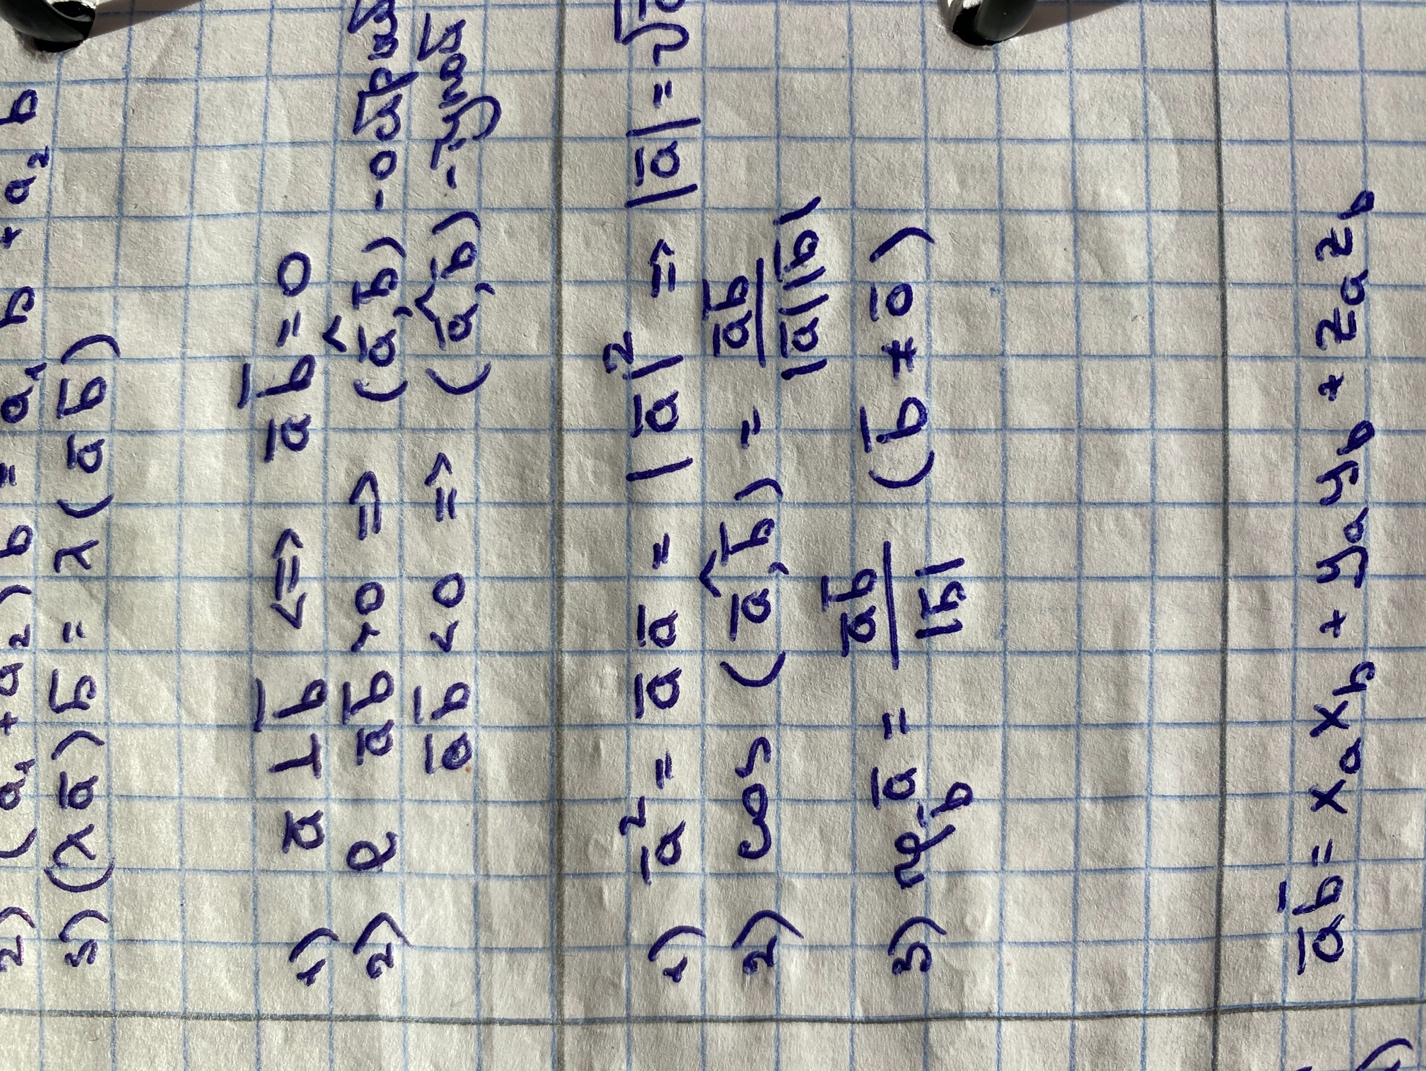 2) (a₁ + a₂) b = a₁ b + a₂ b
3) (λ a̅) b̅ = λ (a̅ b̅)
1) a̅ ⊥ b̅ <=> a̅ b̅ = 0
2) a̅ b̅ > 0 => (a̅,^b̅) -
a̅ b̅ < 0 => (a̅,^b̅) -
1) a̅² = a̅ a̅ = |a̅|² => |a̅| = √
2) cos (a̅,^b̅) = a̅b̅ / |a̅||b̅|
3) пр_b̅ a̅ = a̅b̅ / |b̅| (b̅ ≠ 0̅)
a̅ b̅ = xₐ x_b + yₐ y_b + zₐ z_b